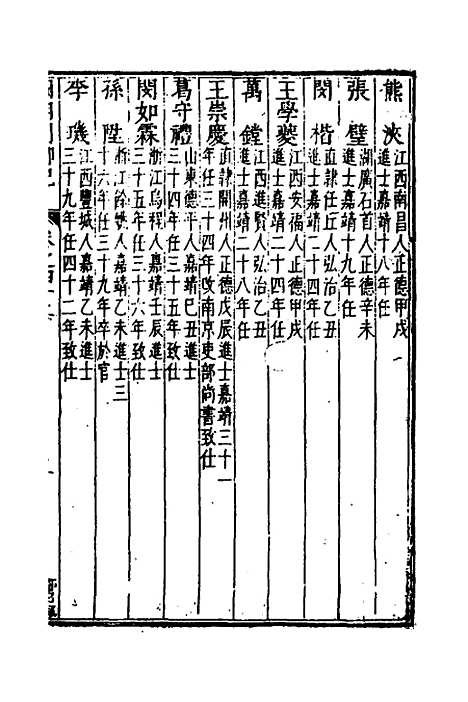 熊浹 江西南昌人正德甲戌
進士嘉靖十八年任
張璧 湖廣石首人正德辛未
進士嘉靖十九年任
閔楷 直隸任丘人弘治乙丑
進士嘉靖二十四年任
王學夔 江西安福人正德甲戌
進士嘉靖二十四年任
萬鏜 江西進賢人弘治乙丑
進士嘉靖二十八年任
王崇慶 直隸開州人正德戊辰進士嘉靖三十一
年任三十四年改南京吏部尚書致仕
葛守禮 山東德平人嘉靖己丑進士
三十四年任三十五年致仕
閔如霖 浙江烏程人嘉靖壬辰進士
三十五年任三十六年致仕
孫陞 浙江餘姚人嘉靖乙未進士三
十六年任三十九年卒於官
李璣 江西豐城人嘉靖乙未進士
三十九年任四十二年致仕